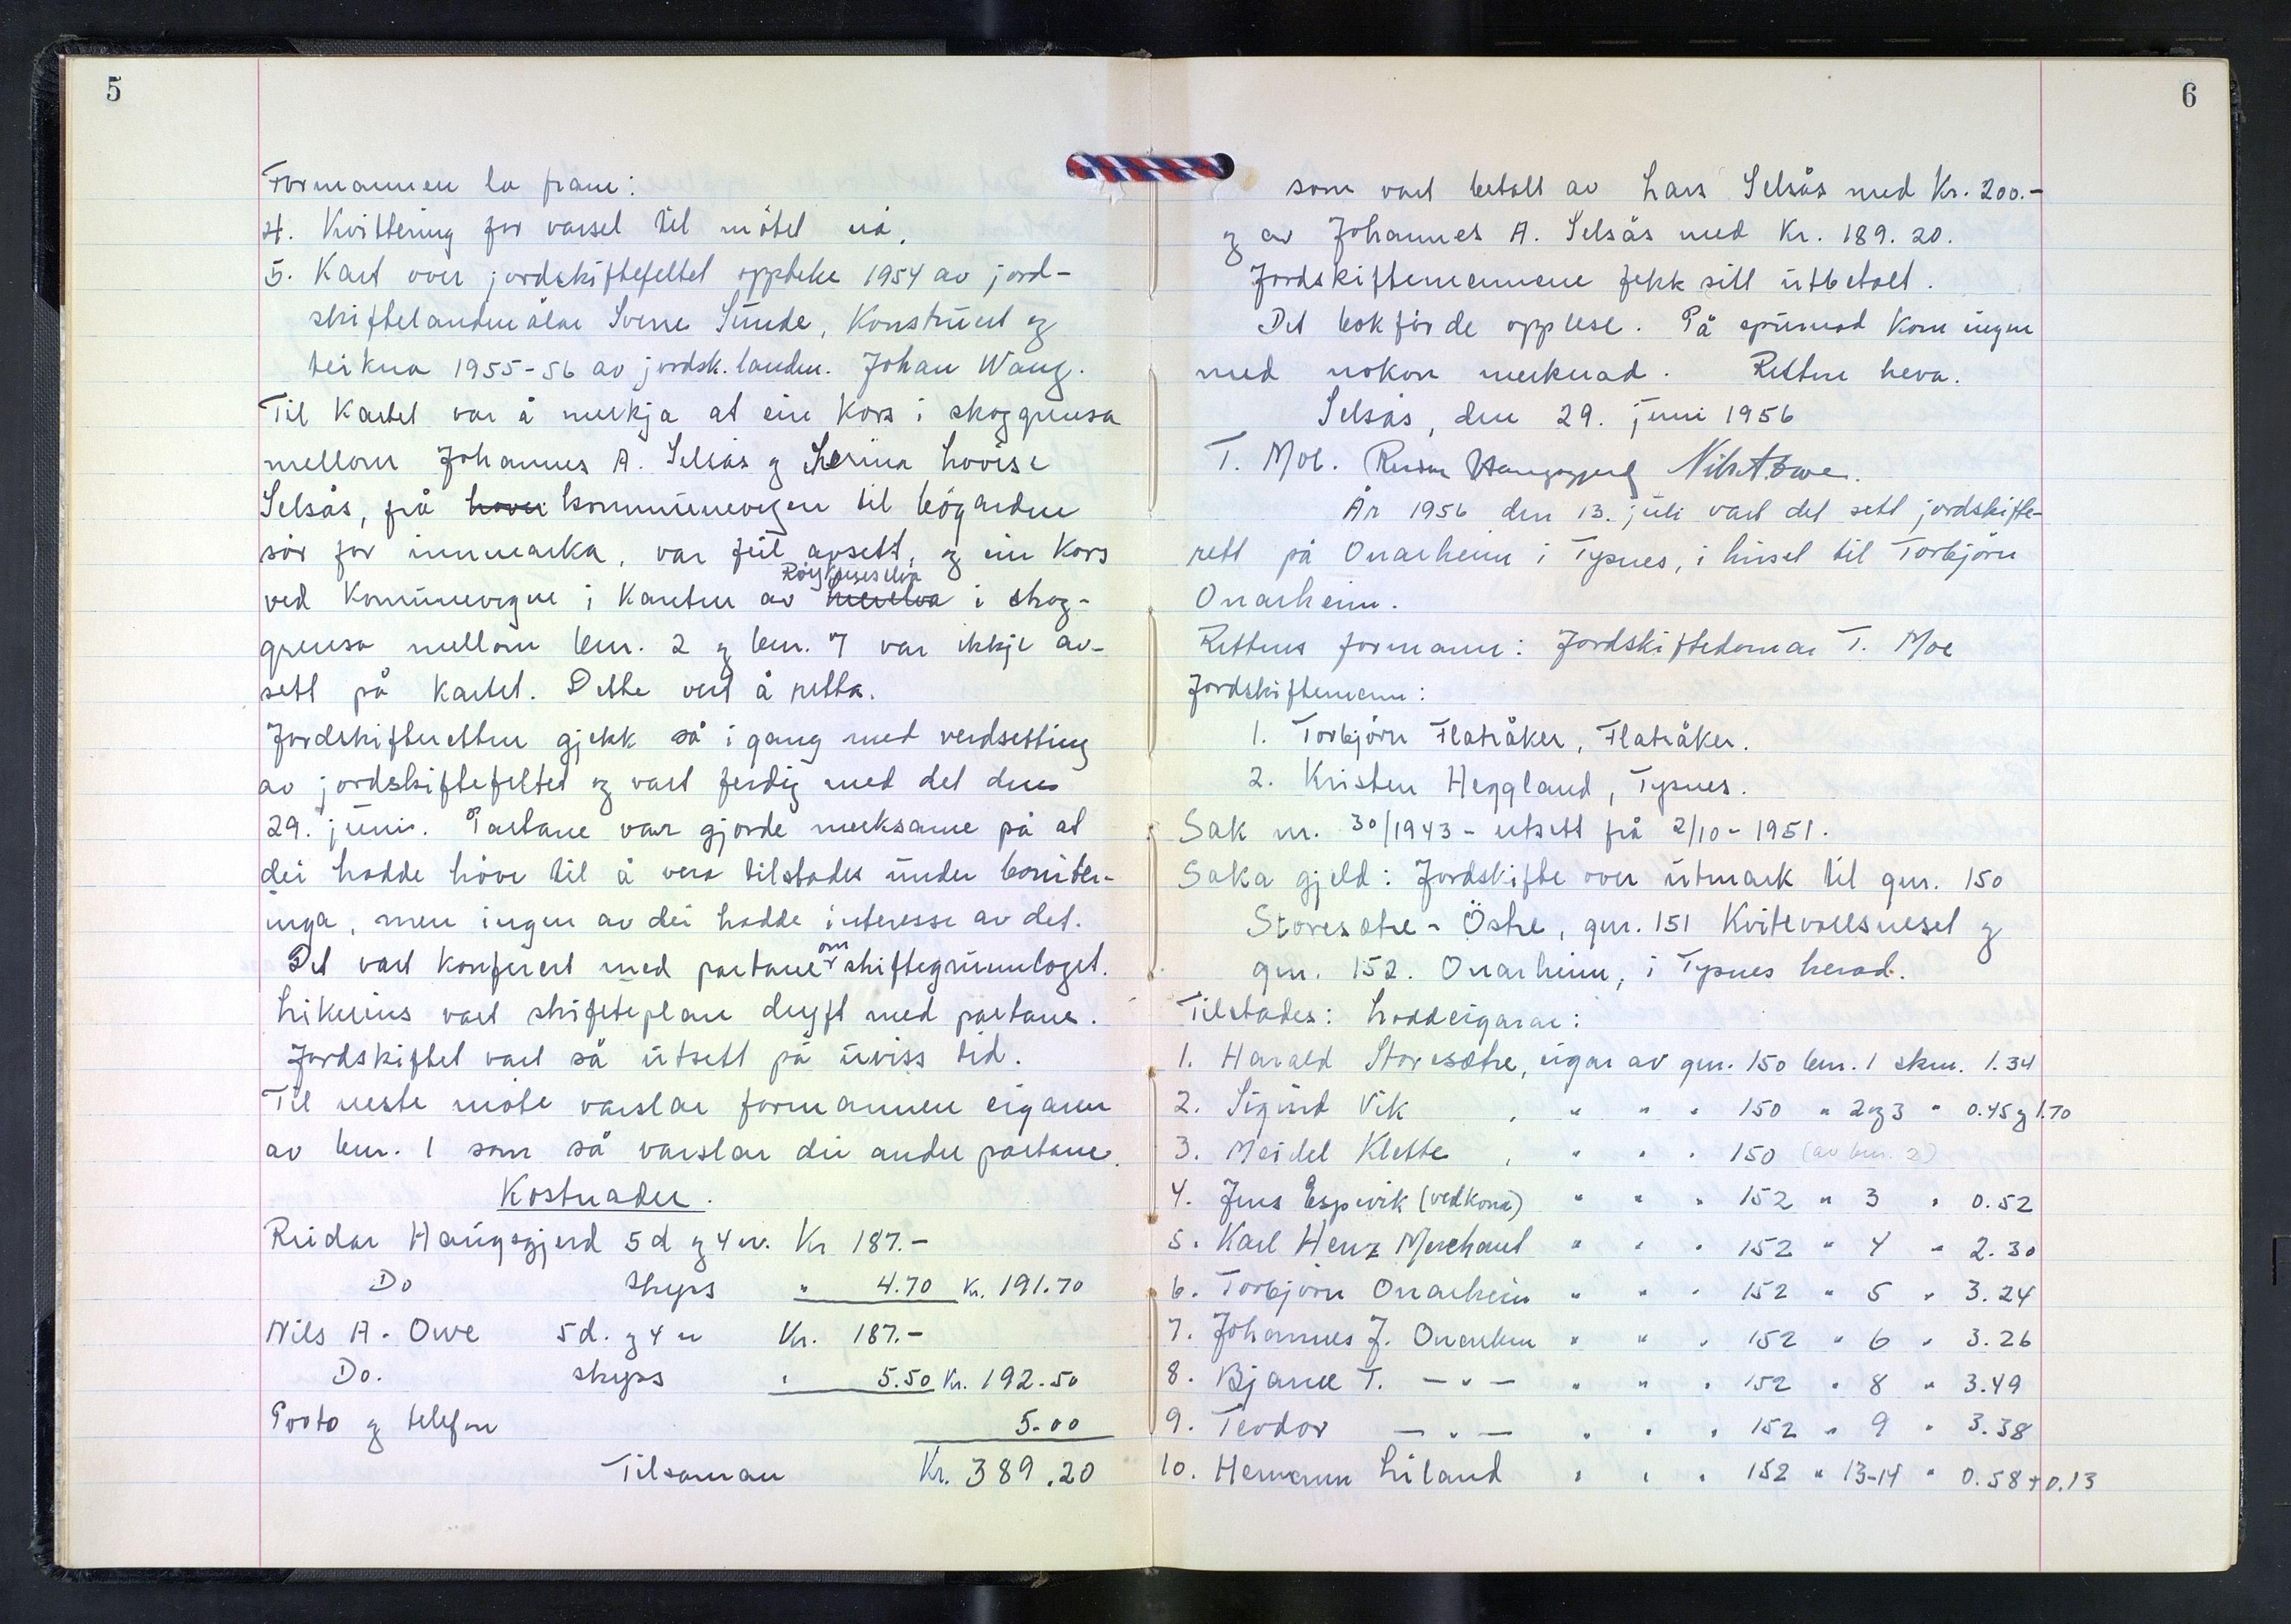 5
Formannen la fram:
4. Kvittering for varsel til mötet nå.
5. Kart over jordskiftefeltet oppteke 1954 av jord-
skiftelandmålar Sverre Sunde, Konstruert og
teikna 1955-56 av jordsk.landm. Johan Wang.
Til Kartet var å merkja at ein Kors i skoggrensa
mellom Johannes A. Selsås og Serina Lovise
Selsås, frå kommunevegen til bögarden
sör for innmarka, var feil avsett, og ein Kors
ved Kommunevegen i Kanten av Röykeneselva i skog-
grensa mellom bnr. 2 og bnr. 7 var ikkje av-
sett på kartet. Dette vert å retta.
Jordskifteretten gjekk så i gang med verdsetting
av jordskiftefeltet og vart ferdig med det den
29. juni. Partane var gjorde merksame på at
dei hadde höve til å vera tilstades under boniter-
inga, men ingen av dei hadde interesse av det.
Det vart konferert med partane om skiftegrunnlaget.
Likeeins vart skifteplan dryft med partane.
Jordskiftet vart så utsett på uviss tid.
Til neste möte varslar formannen eigaren
av bnr. 1 som så varslar dei andre partane.
Kostnader.
Reidar Haugsgjerd 5d og 4 u. Kr 187.-
Do skyss " 4.70 Kr. 191.70
Nils A. Owe 5d. og 4 u Kr. 187.-
Do. skyss " 5.50 Kr. 192.50
Porto og telefon 5.00
Tilsaman Kr. 389.20
6
som vart betalt av Lars Selsås med Kr. 200.-
og av Johannes A. Selsås med Kr. 189.20.
Jordskiftemennene fekk sitt utbetalt.
Det bokförde opplese. På spurnad kom ingen
med nokon merknad. Retten heva.
Selsås, den 29. juni 1956
T. Moe. Reidar Haugsgjerd Nils A. Owe.
År 1956 den 13. juli vart det sett jordskifte-
rett på Onarheim i Tysnes, i huset til Torbjörn
Onarheim.
Rettens formann: Jordskiftedomar T. Moe
Jordskiftemenn:
1. Torbjörn Flatråker, Flatråker.
2. Kristen Heggland, Tysnes.
Sak nr. 30/1943 - utsett frå 2/10 - 1951.
Saka gjeld: Jordskifte over utmark til gnr. 150
Storesætre - Östre, gnr. 151 Kvitevollsneset og
gnr. 152. Onarheim, i Tysnes herad.
Tilstades: Loddeigarar:
1. Harald Storesætre, eigar av gnr. 150 bnr. 1 skm. 1.34
2. Sigurd Vik , " " " 150 " 2 og 3 " 0.45 og 1.70
3. Meidel Klette , " " " 150 (av bnr. 2)
4. Jens Espevik (ved kona) " " " 152 " 3 " 0.52
5. Karl Henz Merchant " " " 152 " 4 " 2.30
6. Torbjörn Onarheim " " " 152 " 5 " 3.24
7. Johannes J. Onarheim " " " 152 " 6 " 3.26
8. Bjarne T. — " — " " " 152 " 8 " 3.49
9. Teodor — " — " " " 152 " 9 " 3.38
10. Hermann Liland " " " 152 " 13-14 " 0.58+0.13